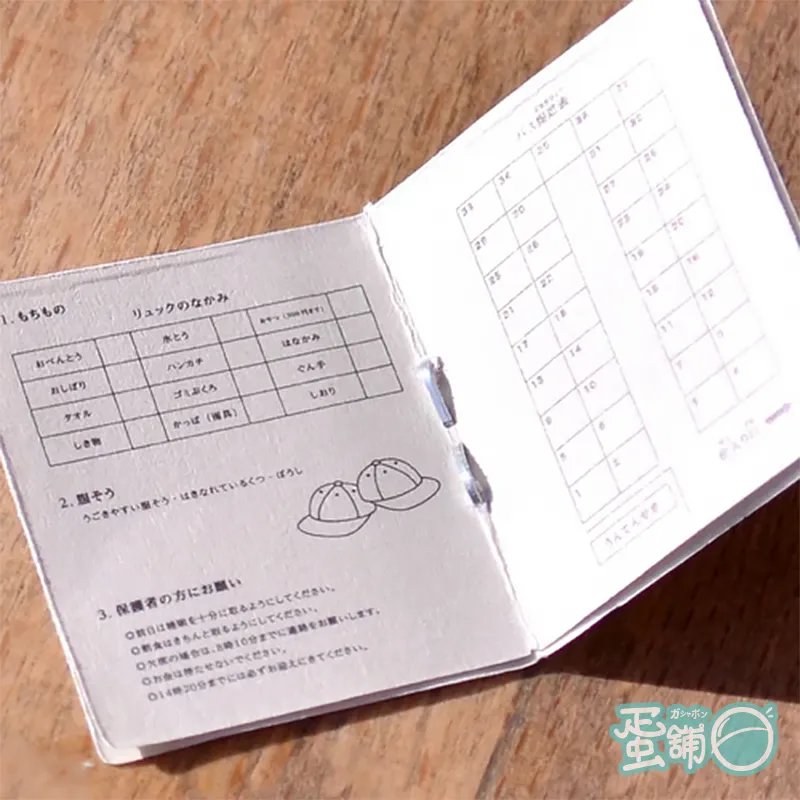 1. もちもの
リュックのなかみ
おべんとう 水とう おやつ (300円まで)
おしぼり ハンカチ はなかみ
タオル ゴミぶくろ ぐん手
しき物 かっぱ (雨具) しおり
2. 服そう
うごきやすい服そう・はきなれているくつ・ぼうし
3. 保護者の方にお願い
○前日は睡眠を十分に取るようにしてください。
○朝食はきちんと取るようにしてください。
○欠席の場合は、8時10分までに連絡をお願いします。
○お金は持たせないでください。
○14時20分までには必ずお迎えにきてください。
バス座席表
33 34 35
29 30 31 32
25 26 27
21 22 23
17 18
13 14
9 10
5 6
1 2
うんてんせき
ガシャポン
蛋舗